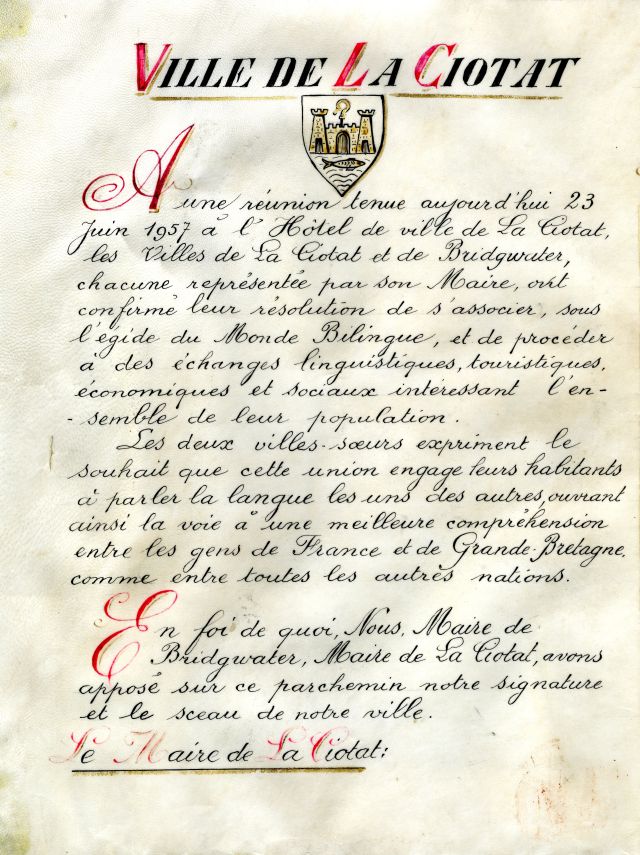 VILLE DE LA CIOTAT
A une réunion tenue aujourd'hui 23
Juin 1957 à l'Hôtel de ville de La Ciotat,
les Villes de La Ciotat et de Bridgwater,
chacune représentée par son Maire, ont
confirmé leur résolution de s'associer, sous
l'égide du Monde Bilingue, et de procéder
à des échanges linguistiques, touristiques,
économiques et sociaux intéressant l'en-
-semble de leur population.
Les deux villes-sœurs expriment le
souhait que cette union engage leurs habitants
à parler la langue les uns des autres, ouvrant
ainsi la voie à une meilleure compréhension
entre les gens de France et de Grande-Bretagne,
comme entre toutes les autres nations.
En foi de quoi, Nous, Maire de
Bridgwater, Maire de La Ciotat, avons
apposé sur ce parchemin notre signature
et le sceau de notre ville.
Le Maire de La Ciotat: